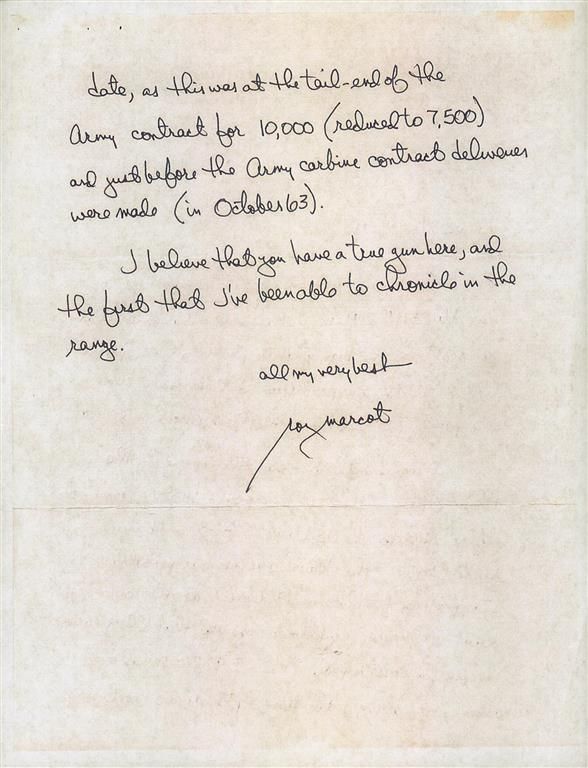 date, as this was at the tail-end of the
Army contract for 10,000 (reduced to 7,500)
and just before the Army carbine contract deliveries
were made (in October 63).
I believe that you have a true gun here, and
the first that I've been able to chronicle in the
range.
all my very best
roy marcot